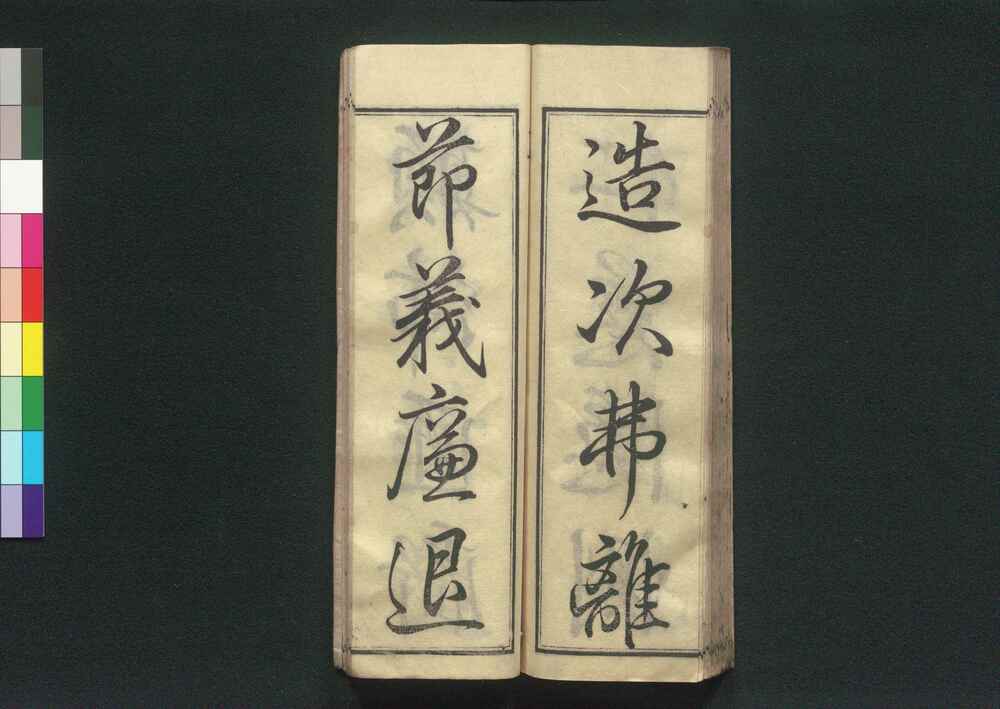 造次弗離
節義廉退